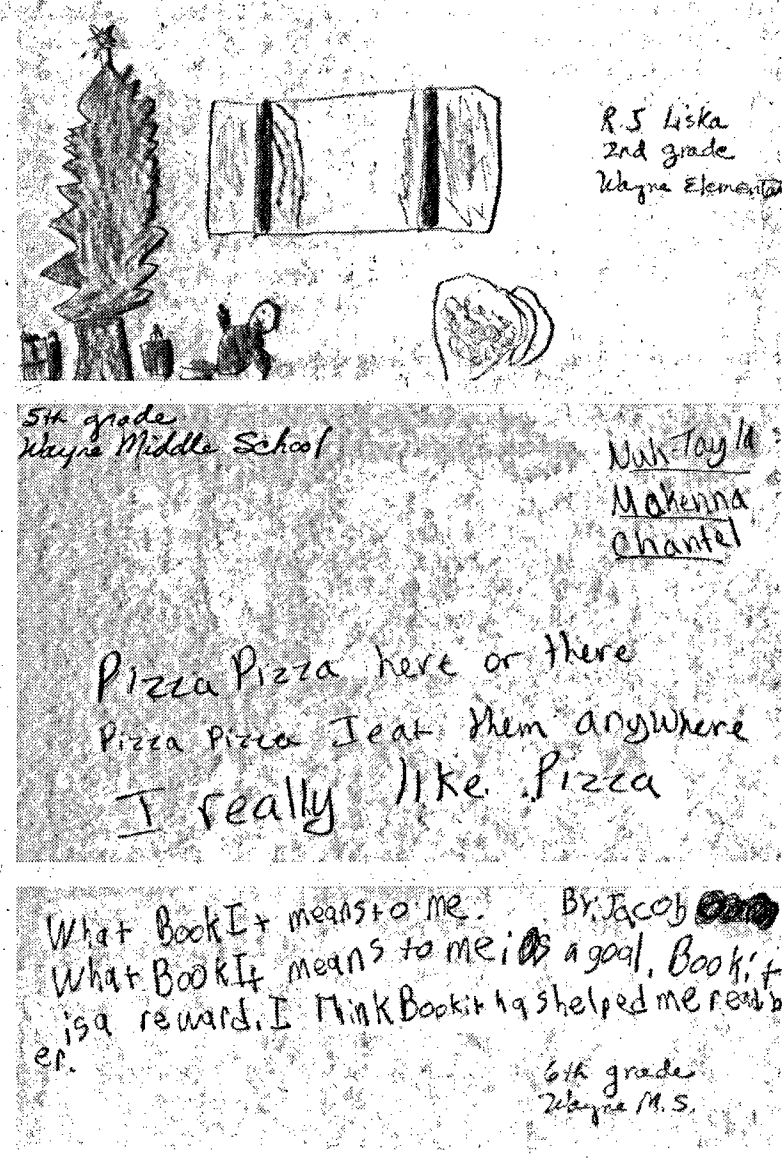 R.J Liska
2nd grade
Wayne Elementa
5th grade
Wayne Middle School
Makenna
Chantel
Pizza Pizza here or there
Pizza Pizza I eat them anywhere
I really like Pizza
What BookIt means to me. By: Jacob
What BookIt means to me is a goal. Bookit
is a reward. I think Bookit has helped me read b
er.
6th grade
Wayne M.S.